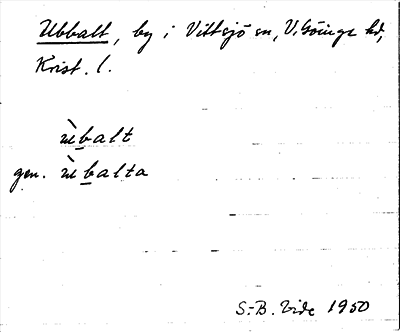 Ubbalt, by i Vittsjö sn, V. Göinge hd,
Krist. l.
ùbalt
gen. ùbalta
S.-B. Vide 1950